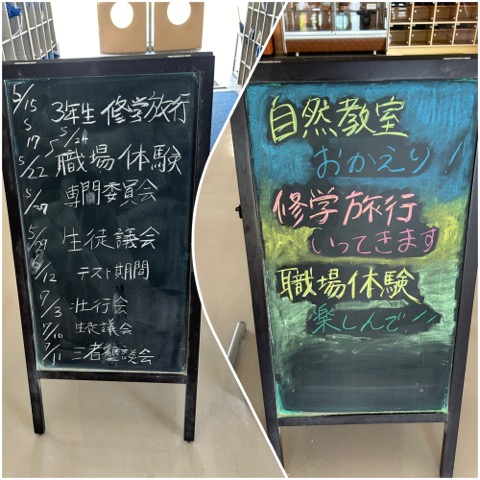 5/15
3年生 修学旅行
5
17
5/22
5/24
職場体験
5/29
専門委員会
生徒議会
テスト期間
12
7/3 壮行会
7/10 生徒議会
7/11 三者懇談会
自然教室
おかえり!
修学旅行
いってきます
職場体験
楽しんで!!